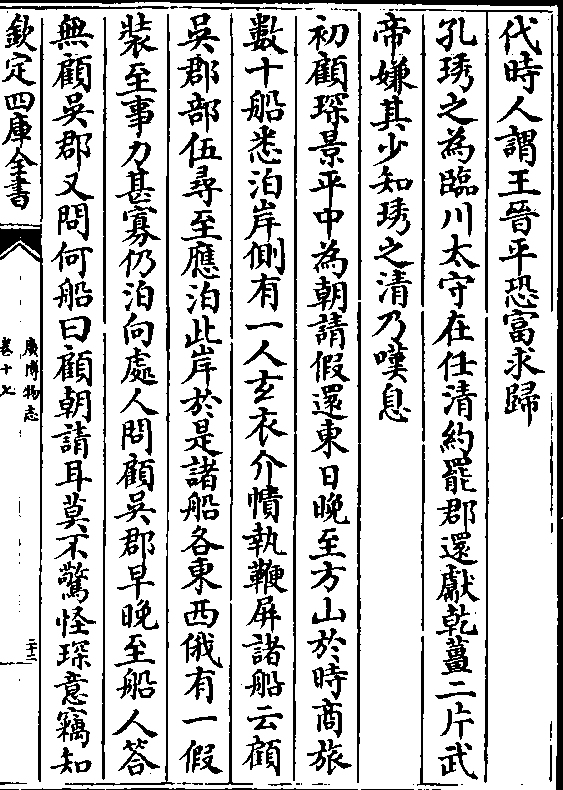 代時人謂王晉平恐富求歸
孔琇之為臨川太守在任清約罷郡還獻乾薑二片武
帝嫌其少知琇之清乃嘆息
初顧琛景平中為朝請假還東日晚至方山於時商旅
數十船悉泊岸側有一人玄衣介幘執鞭屏諸船云顧
吳郡部伍尋至應泊此岸於是諸船各東西俄有一假
裝至事力甚寡仍泊向處人問顧吳郡早晚至船人答
無顧吳郡又問何船曰顧朝請耳莫不驚怪琛意竊知
欽定四庫全書
廣博物志
卷十七
二十二